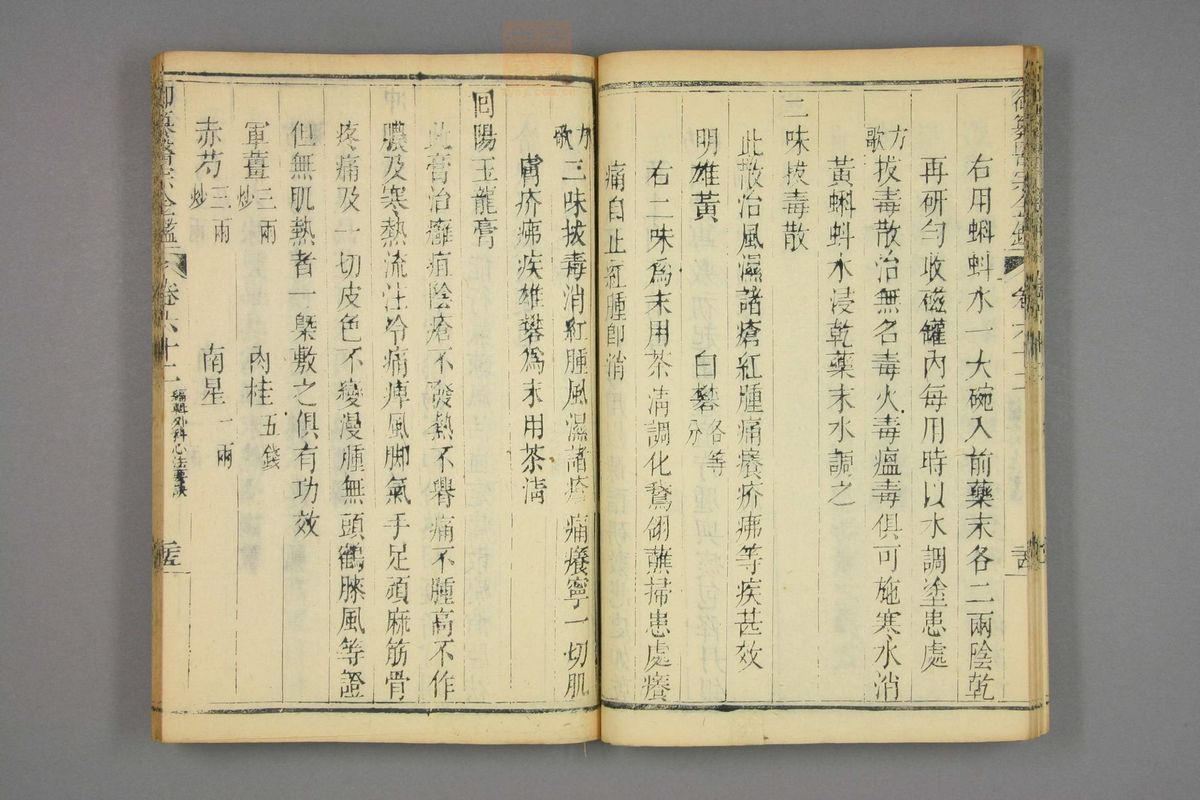 御纂醫宗金鑑
右用蝌蚪水一大碗入前藥末各二兩陰乾
再研勻收磁罐內每用時以水調塗患處
方歌 拔毒散治無名毒火毒瘟毒俱可施寒水消
黃蝌蚪水浸乾藥末水調之
二味拔毒散
此散治風濕諸瘡紅腫痛癢疥疿等疾甚效
明雄黃 白礬各等分
右二味爲末用茶清調化鵞翎蘸掃患處癢
痛自止紅腫即消
方歌 二味拔毒消紅腫風濕諸瘡痛癢寧一切肌
膚疥疿疾雄礬爲末用茶清
回陽玉龍膏
此膏治癰疽陰瘡不發熱不臖痛不腫高不作
膿及寒熱流注冷痛痺風脚氣手足頑麻筋骨
疼痛及一切皮色不變漫腫無頭鶴膝風等證
但無肌熱者一槩敷之俱有功效
軍薑三兩炒 肉桂五錢
赤芍三兩炒 南星一兩
御纂醫宗金鑑 卷六十二 編輯外科心法要訣 二五